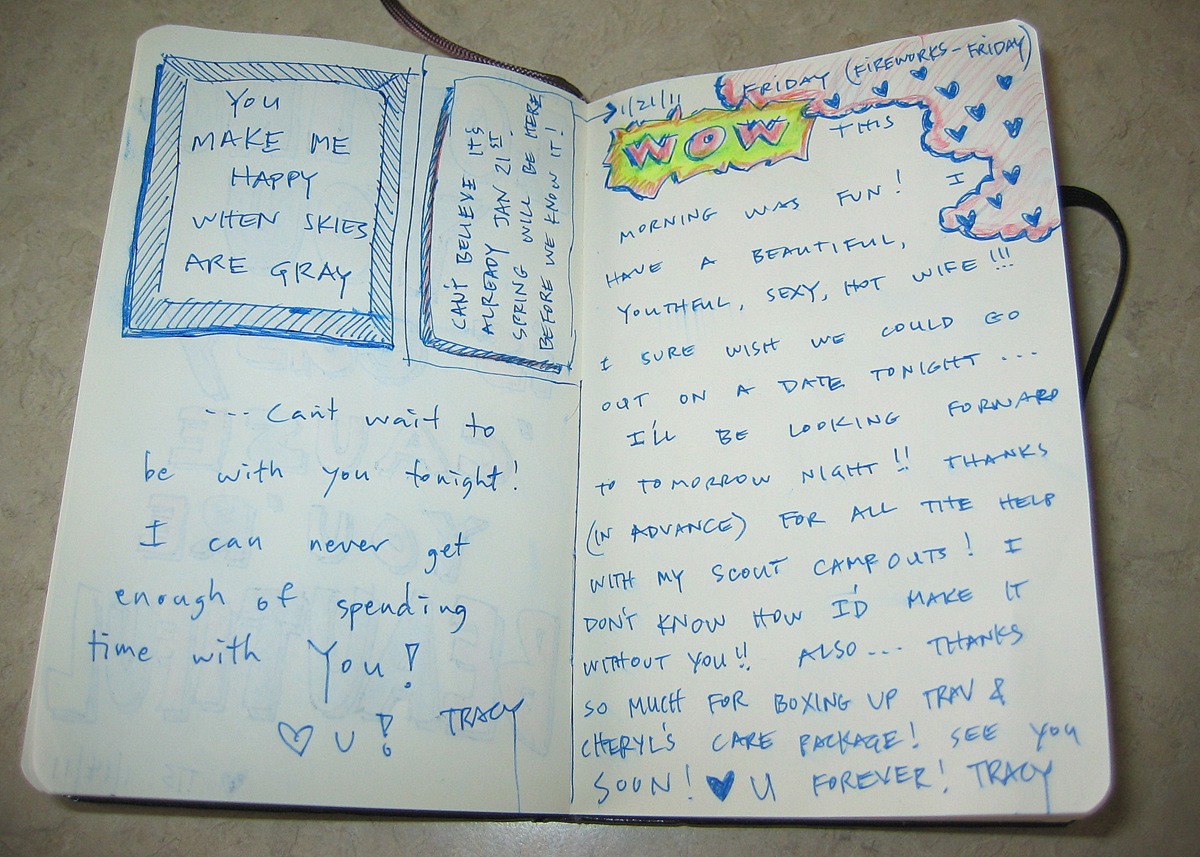 YOU
MAKE ME
HAPPY
WHEN SKIES
ARE GRAY
CAN'T BELIEVE IT'S
ALREADY JAN 21ST.
SPRING WILL BE HERE
BEFORE WE KNOW IT!
... Can't wait to
be with you tonight!
I can never get
enough of spending
time with You!
♡ U! TRACY
→1/21/11 FRIDAY (FIREWORKS-FRIDAY)
WOW THIS
MORNING WAS FUN! I
HAVE A BEAUTIFUL,
YOUTHFUL, SEXY, HOT WIFE!!!
I SURE WISH WE COULD GO
OUT ON A DATE TONIGHT...
I'LL BE LOOKING FORWARD
TO TOMORROW NIGHT!! THANKS
(IN ADVANCE) FOR ALL THE HELP
WITH MY SCOUT CAMPOUTS! I
DON'T KNOW HOW I'D MAKE IT
WITHOUT YOU!! ALSO... THANKS
SO MUCH FOR BOXING UP TRAV &
CHERYL'S CARE PACKAGE! SEE YOU
SOON! ♥ U FOREVER! TRACY